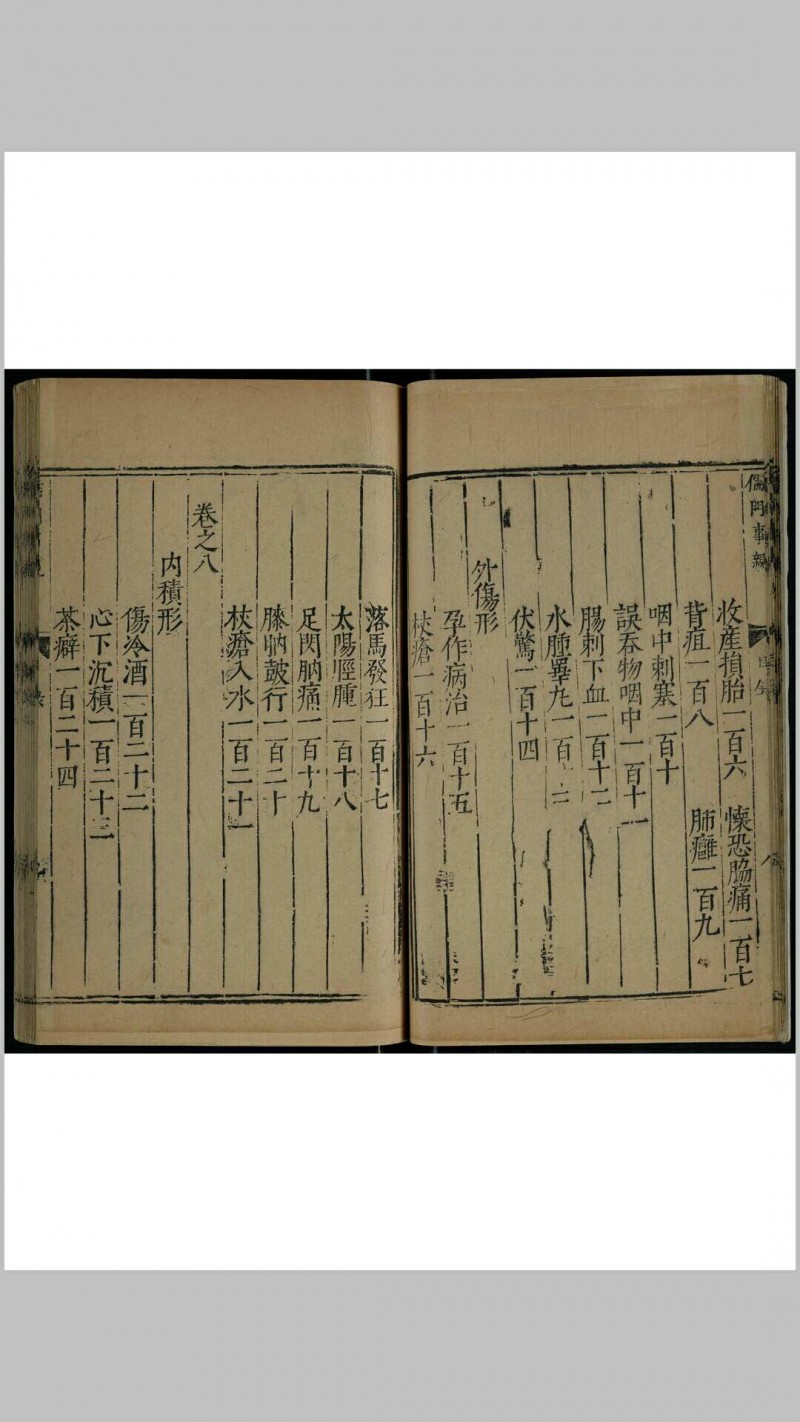 儒門事親
收產損胎一百六 懷恐脇痛一百七
背疽一百八 肺癰一百九
咽中刺塞一百十
誤吞物咽中一百十一
腸刺下血一百十二
水腫睪丸一百十三
伏驚一百十四
外傷形
孕作病治一百十五
杖瘡一百十六
落馬發狂一百十七
太陽脛腫一百十八
足閃肭痛一百十九
膝肭皷行一百二十
杖瘡入水一百二十一
卷之八
內積形
傷冷酒一百二十二
心下沉積一百二十三
茶癖一百二十四